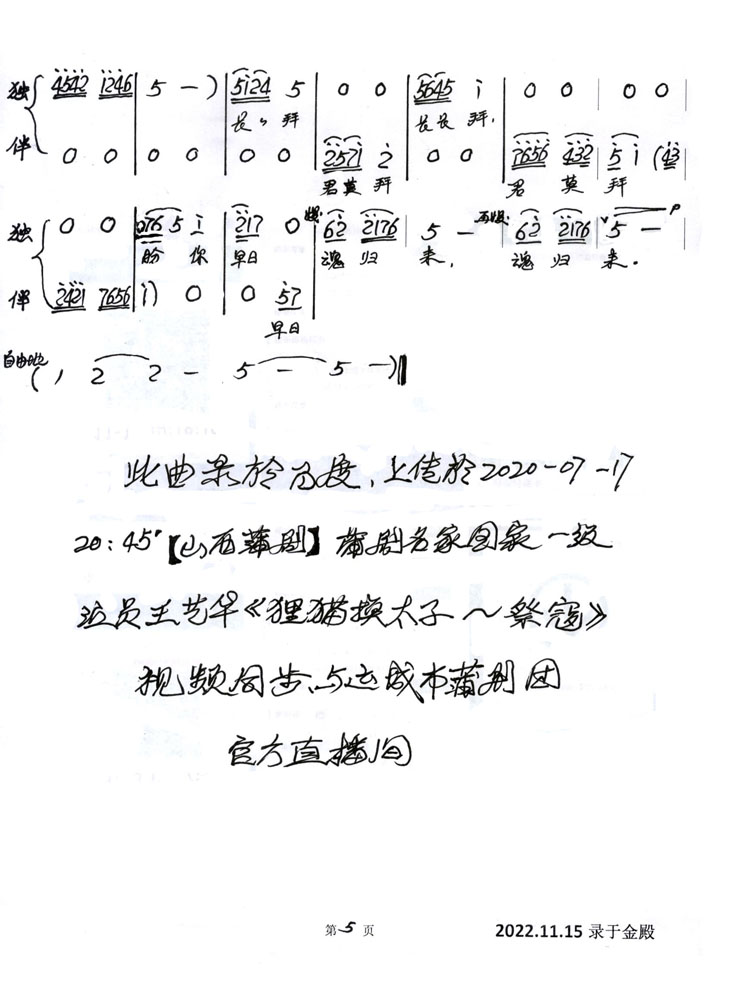 独 4542 1246 | 5 - ) | 5124 5 | 0 0 | 5645 i | 0 0 | 0 0
长长 拜 长长 拜,
伴 0 0 | 0 0 | 0 0 | 2571 2 | 0 0 | 7656 432 | 5 i (43
君莫 拜 君 莫 拜
独 0 0 | 076 5 i | 217 0 | 62 2176 | 5 - | 62 2176 | 5 -
盼 你 早日 魂 归 来, 魂 归 来.
伴 2421 7656 | i) 0 | 0 57
早日
自由地
( , 2 2 - 5 - 5 - )
此曲录於百度,上传於2020-07-17
20:45"【山西蒲剧】蒲剧名家国家一级
演员王艺华《狸猫换太子~祭寇》
视频同步与运城市蒲剧团
官方直播间
第 5 页
2022.11.15 录于金殿